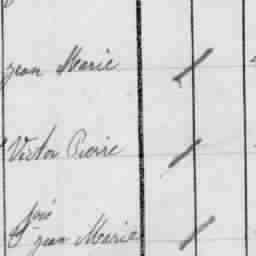 Jean Marie
Victor Pierre
José
Jean Marie